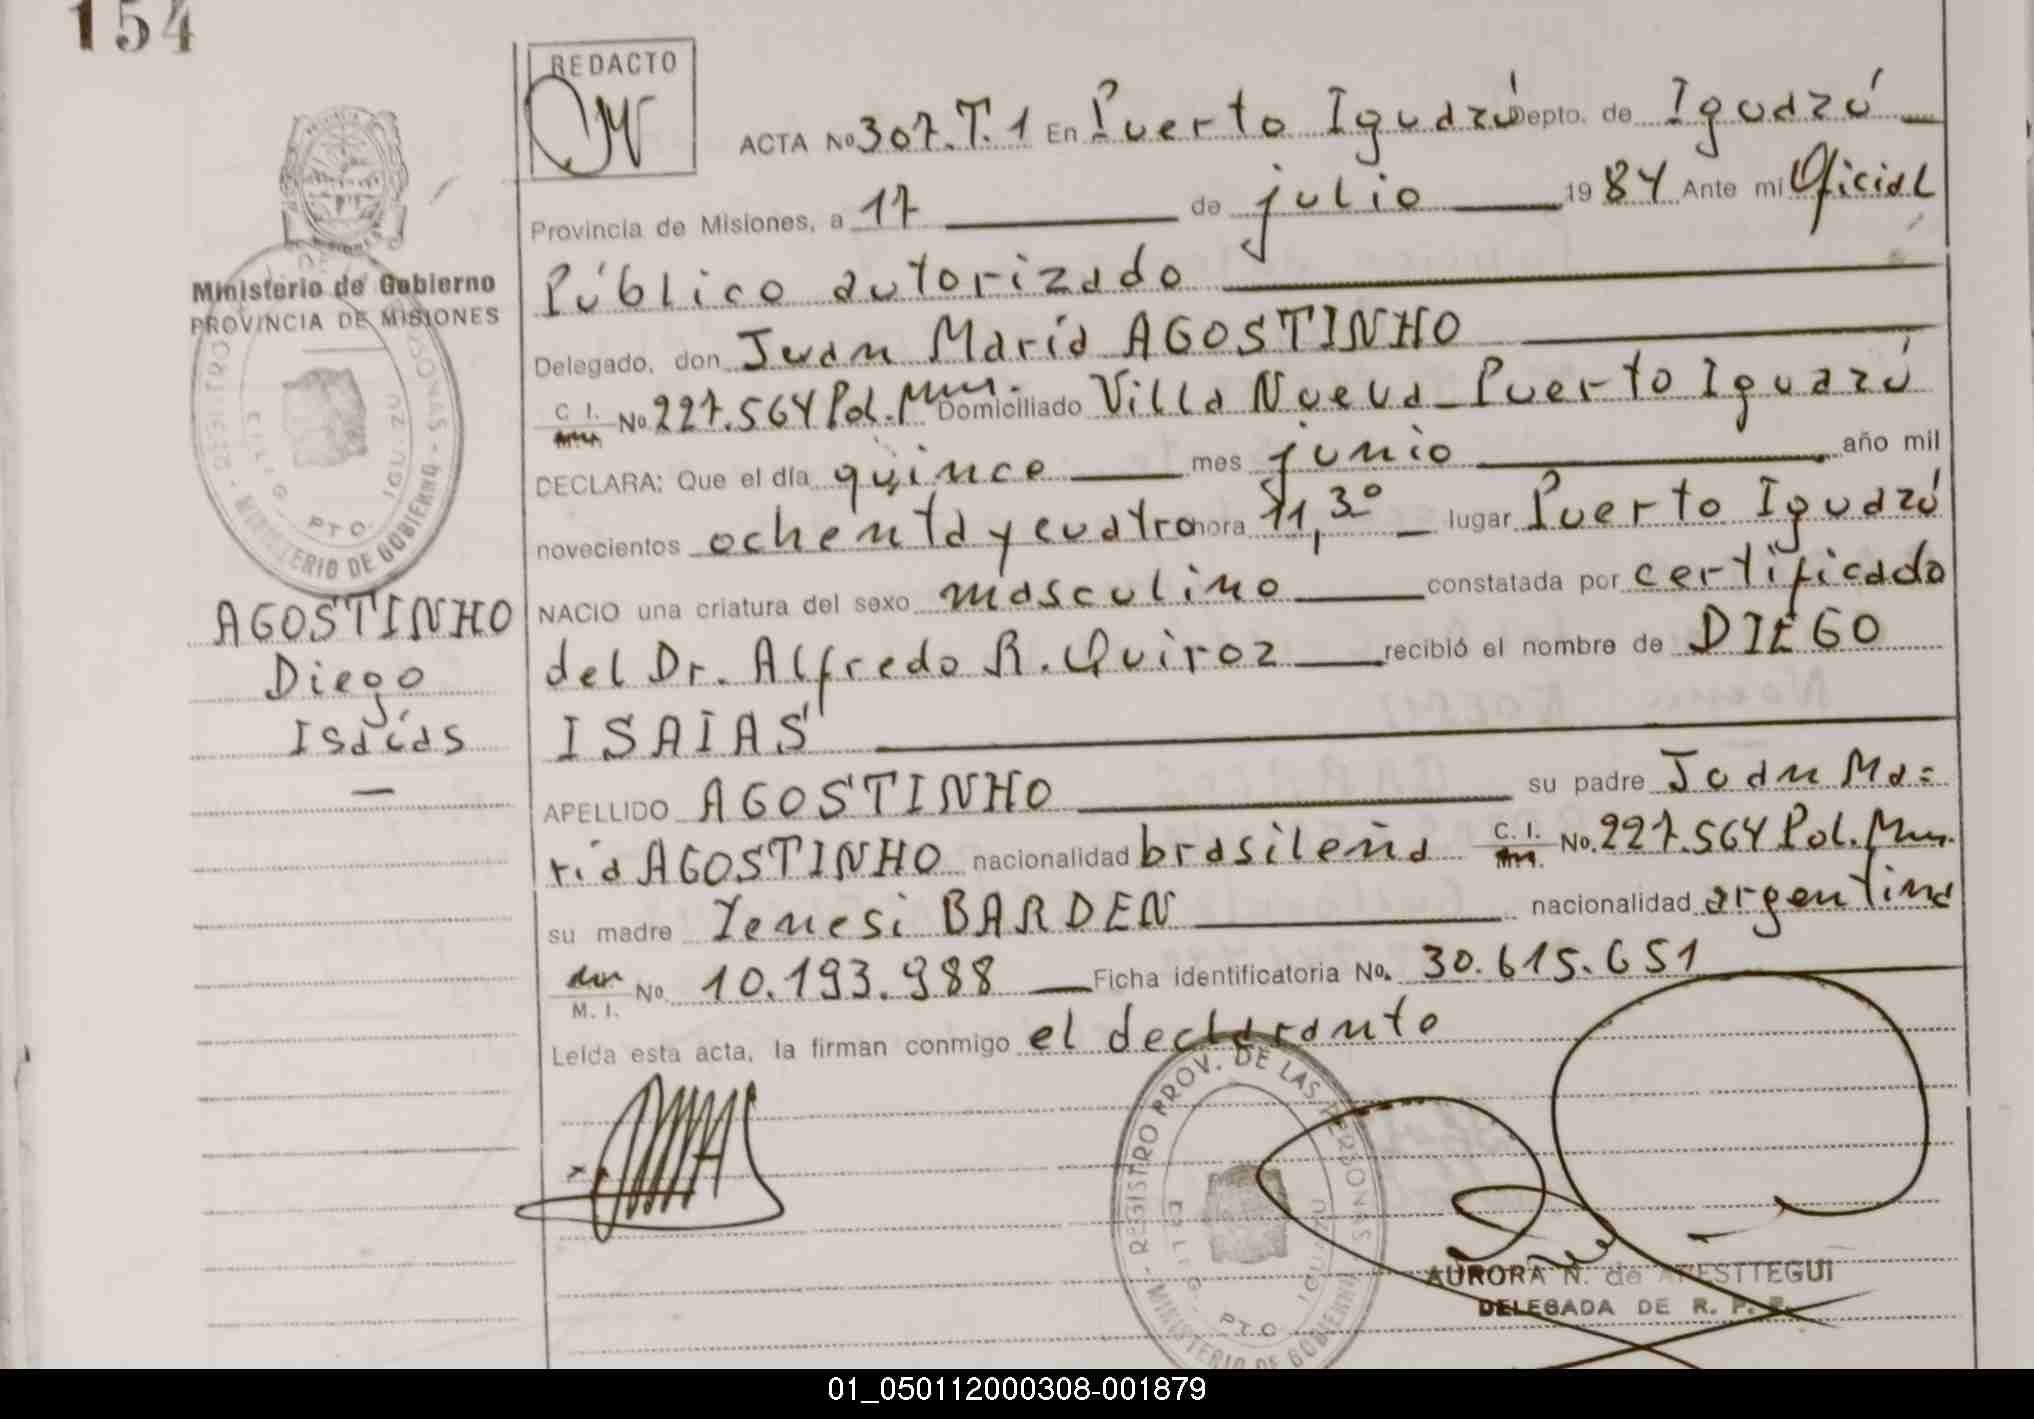 154
REDACTO
ACTA No 307.T.1 En Puerto Iguazú Depto. de Iguazú
Provincia de Misiones, a 17 de julio 1984 Ante mi Oficial
Público autorizado
Delegado, don Juan María AGOSTINHO
C. I. No 227.564 Pol. Mnes. Domiciliado Villa Nueva - Puerto Iguazú
DECLARA: Que el día quince mes junio año mil
novecientos ochenta y cuatro hora 11,30 lugar Puerto Iguazú
NACIO una criatura del sexo masculino constatada por certificado
del Dr. Alfredo R. Quiroz recibió el nombre de DIEGO
ISAIAS
APELLIDO AGOSTINHO su padre Juan Ma=
ría AGOSTINHO nacionalidad brasileña C. I. No. 227.564 Pol. Mnes.
su madre Yenesi BARDEN nacionalidad argentina
M. I. No. 10.193.988 Ficha identificatoria No. 30.615.651
Leída esta acta, la firman conmigo el declarante
Ministerio de Gobierno
PROVINCIA DE MISIONES
AGOSTINHO
Diego
Isaías
REGISTRO PROV. DE LAS PERSONAS
MINISTERIO DE GOBIERNO
PTO. IGUAZU
AURORA N. de ARESTTEGUI
DELEGADA DE R. P. P.
01_050112000308-001879